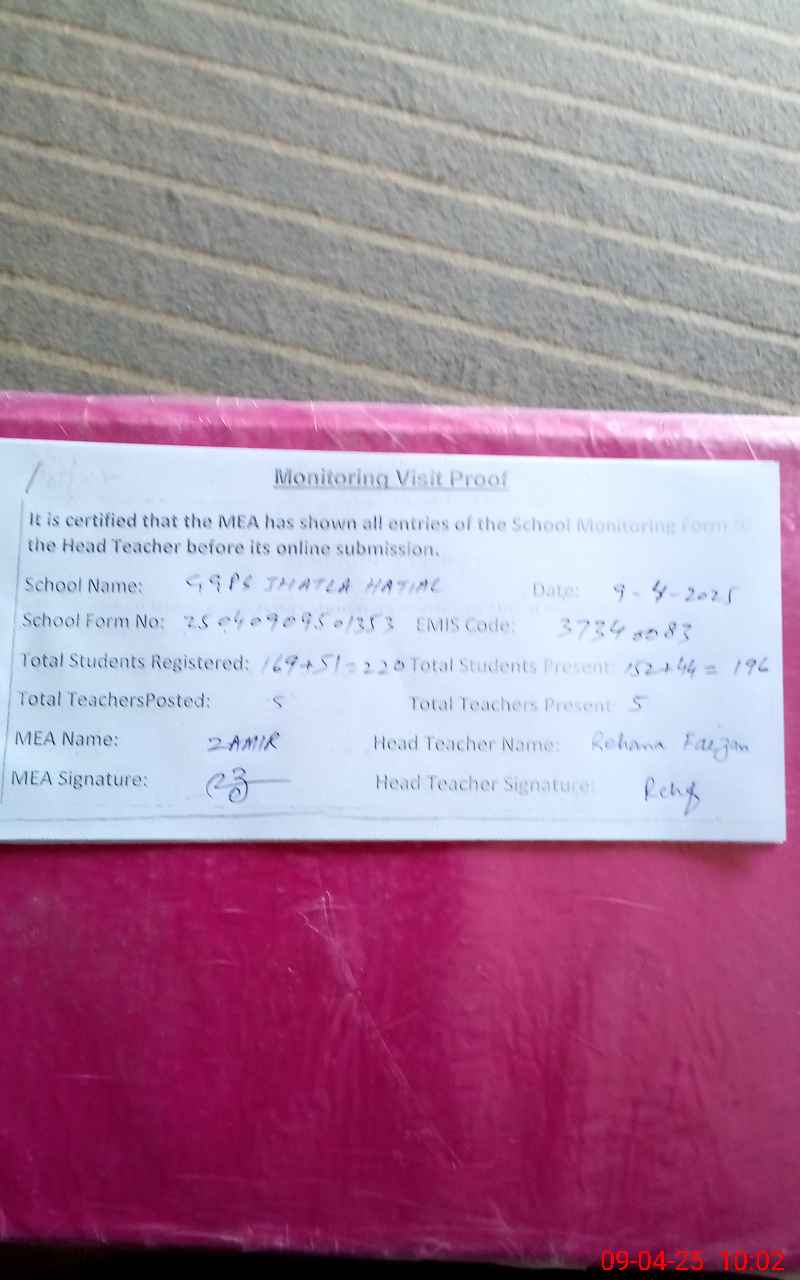 Monitoring Visit Proof
It is certified that the MEA has shown all entries of the School Monitoring Form to
the Head Teacher before its online submission.
School Name: GGPS JHATLA HATIAL Date: 9-4-2025
School Form No: 25040909501353 EMIS Code: 37340083
Total Students Registered: 169+51=220 Total Students Present: 152+44=196
Total TeachersPosted: 5 Total Teachers Present 5
MEA Name: ZAMIR Head Teacher Name: Rehana Faizan
MEA Signature: Head Teacher Signature:
09-04-25 10:02